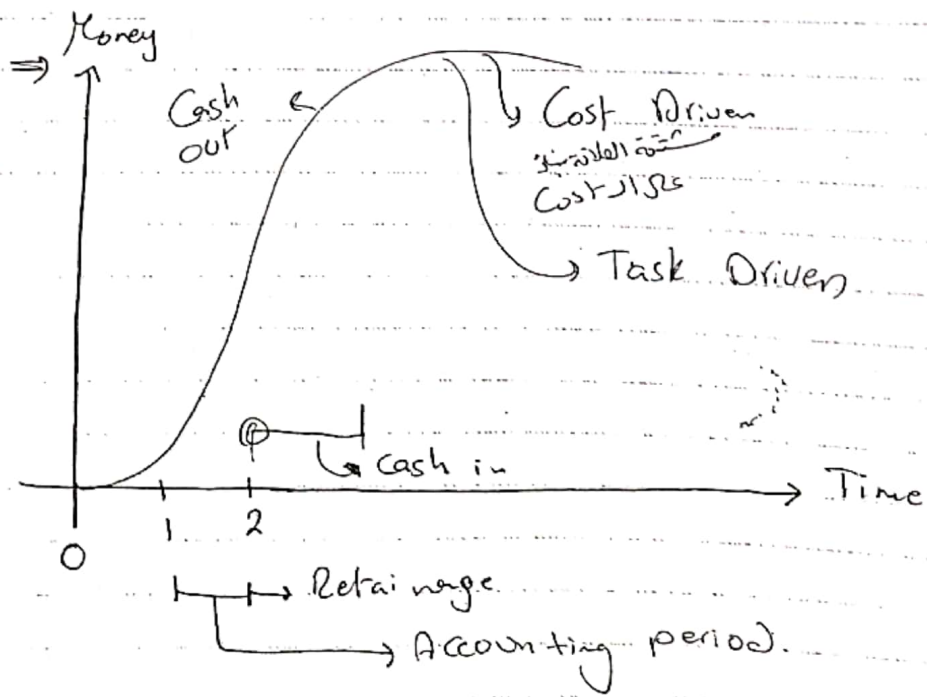 ⇒ Money
Cash
out
Cost Driven
Cost
Task Driven
cash in
Time
0 1 2
Retainage
Accounting period.